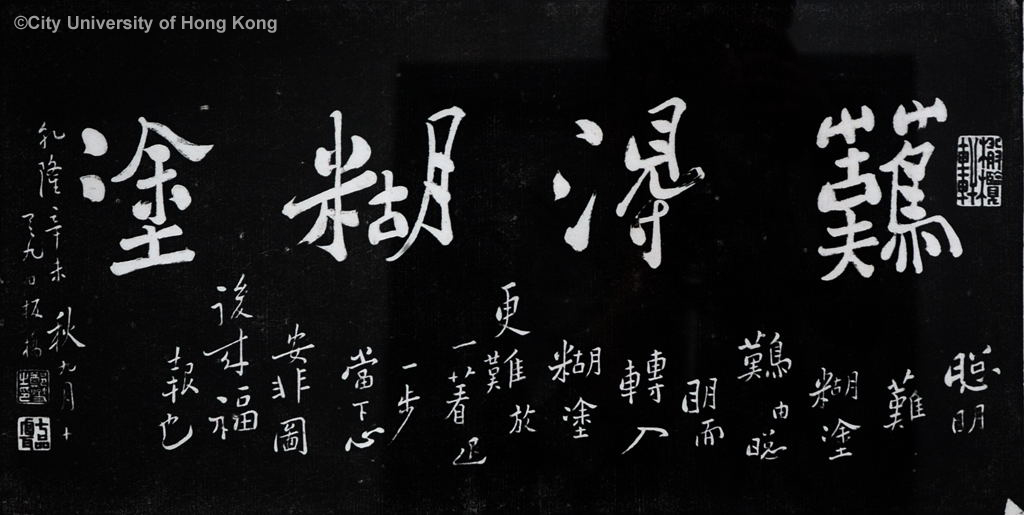 ©City University of Hong Kong
難得糊塗
聰明
難
糊塗
難由聰
明而
轉入
糊塗
更難放
一著退
一步
當下心
安非圖
後來福
報也
乾隆辛未秋九月十
九日板橋